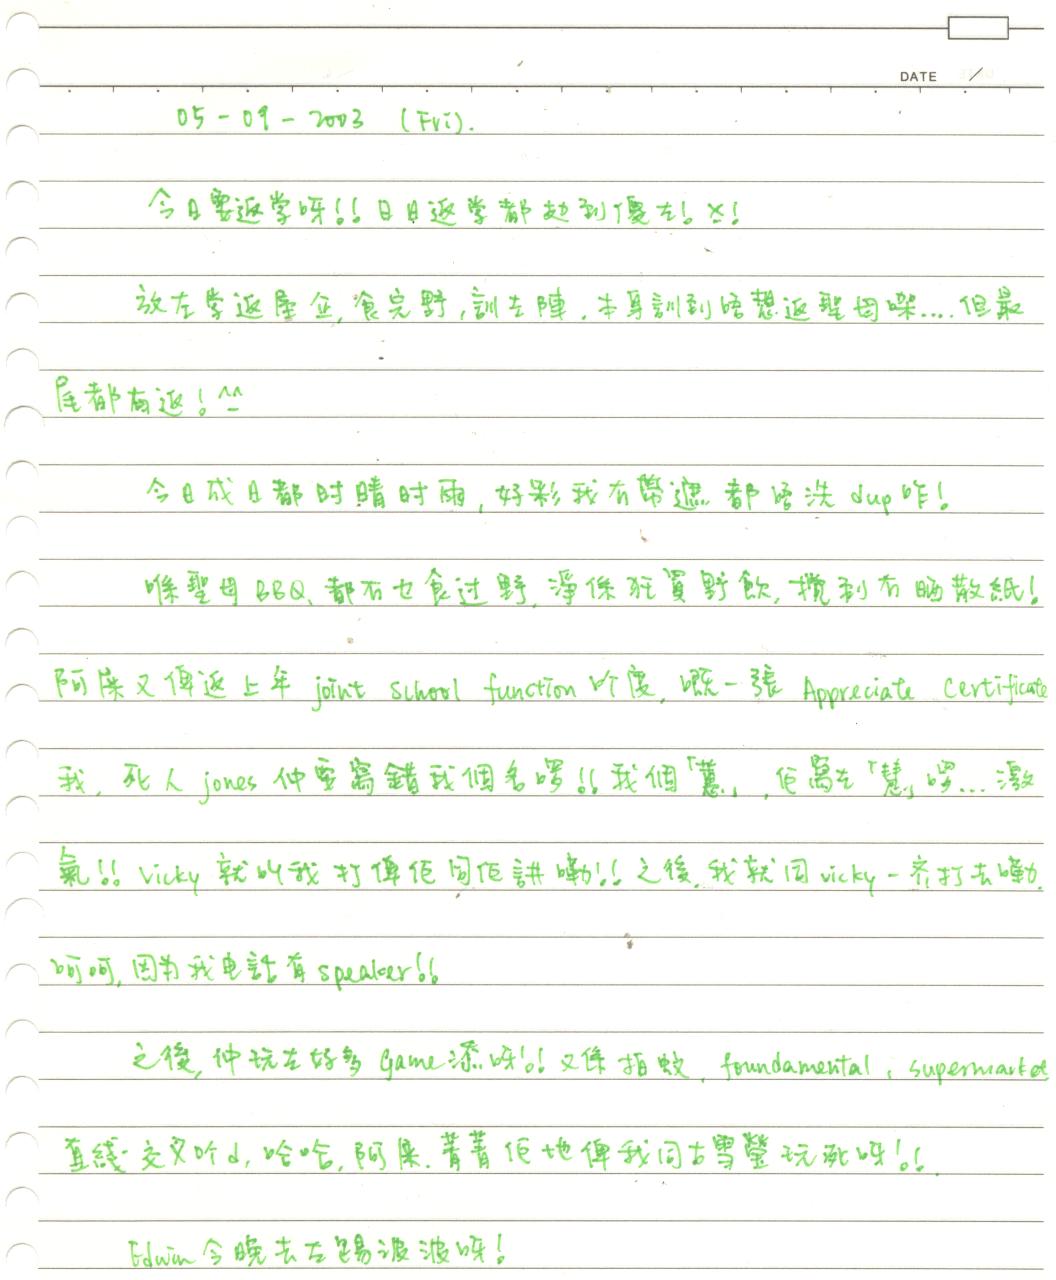 DATE
05-09-2003 (Fri).
今日要返学呀!! 日日返学都攰到傻左! X!
放左学返屋企, 食完野, 訓左陣, 本身訓到唔想返聖母㗎.... 但最
尾都有返! ^_^
今日成日都时晴时雨, 好彩我有帶遮 都唔洗 dup 咋!
喺聖母 BBQ、都冇乜食过野, 淨係狂買野飲, 攪到冇晒散紙!
阿 又俾返上年 joint school function 吖度, 嘅一張 Appreciate Certificate
我, 死人 jones 仲要寫錯我個名㗎!! 我個「蕙」, 佢寫左「慧」啰... 激
氣!! Vicky 就叫我打俾佢同佢講嘞!! 之後, 我就同 vicky 一齐打去嘞,
呵呵, 因为我电話有 speaker!!
之後, 仲玩左好多 Game 添呀!! 又係拍蚊, foundamental, supermarket
直綫交叉吖d, 哈哈, 阿 . 菁菁佢地俾我同古雪瑩玩死呀!!
Edwin 今晚去左踢波波呀!